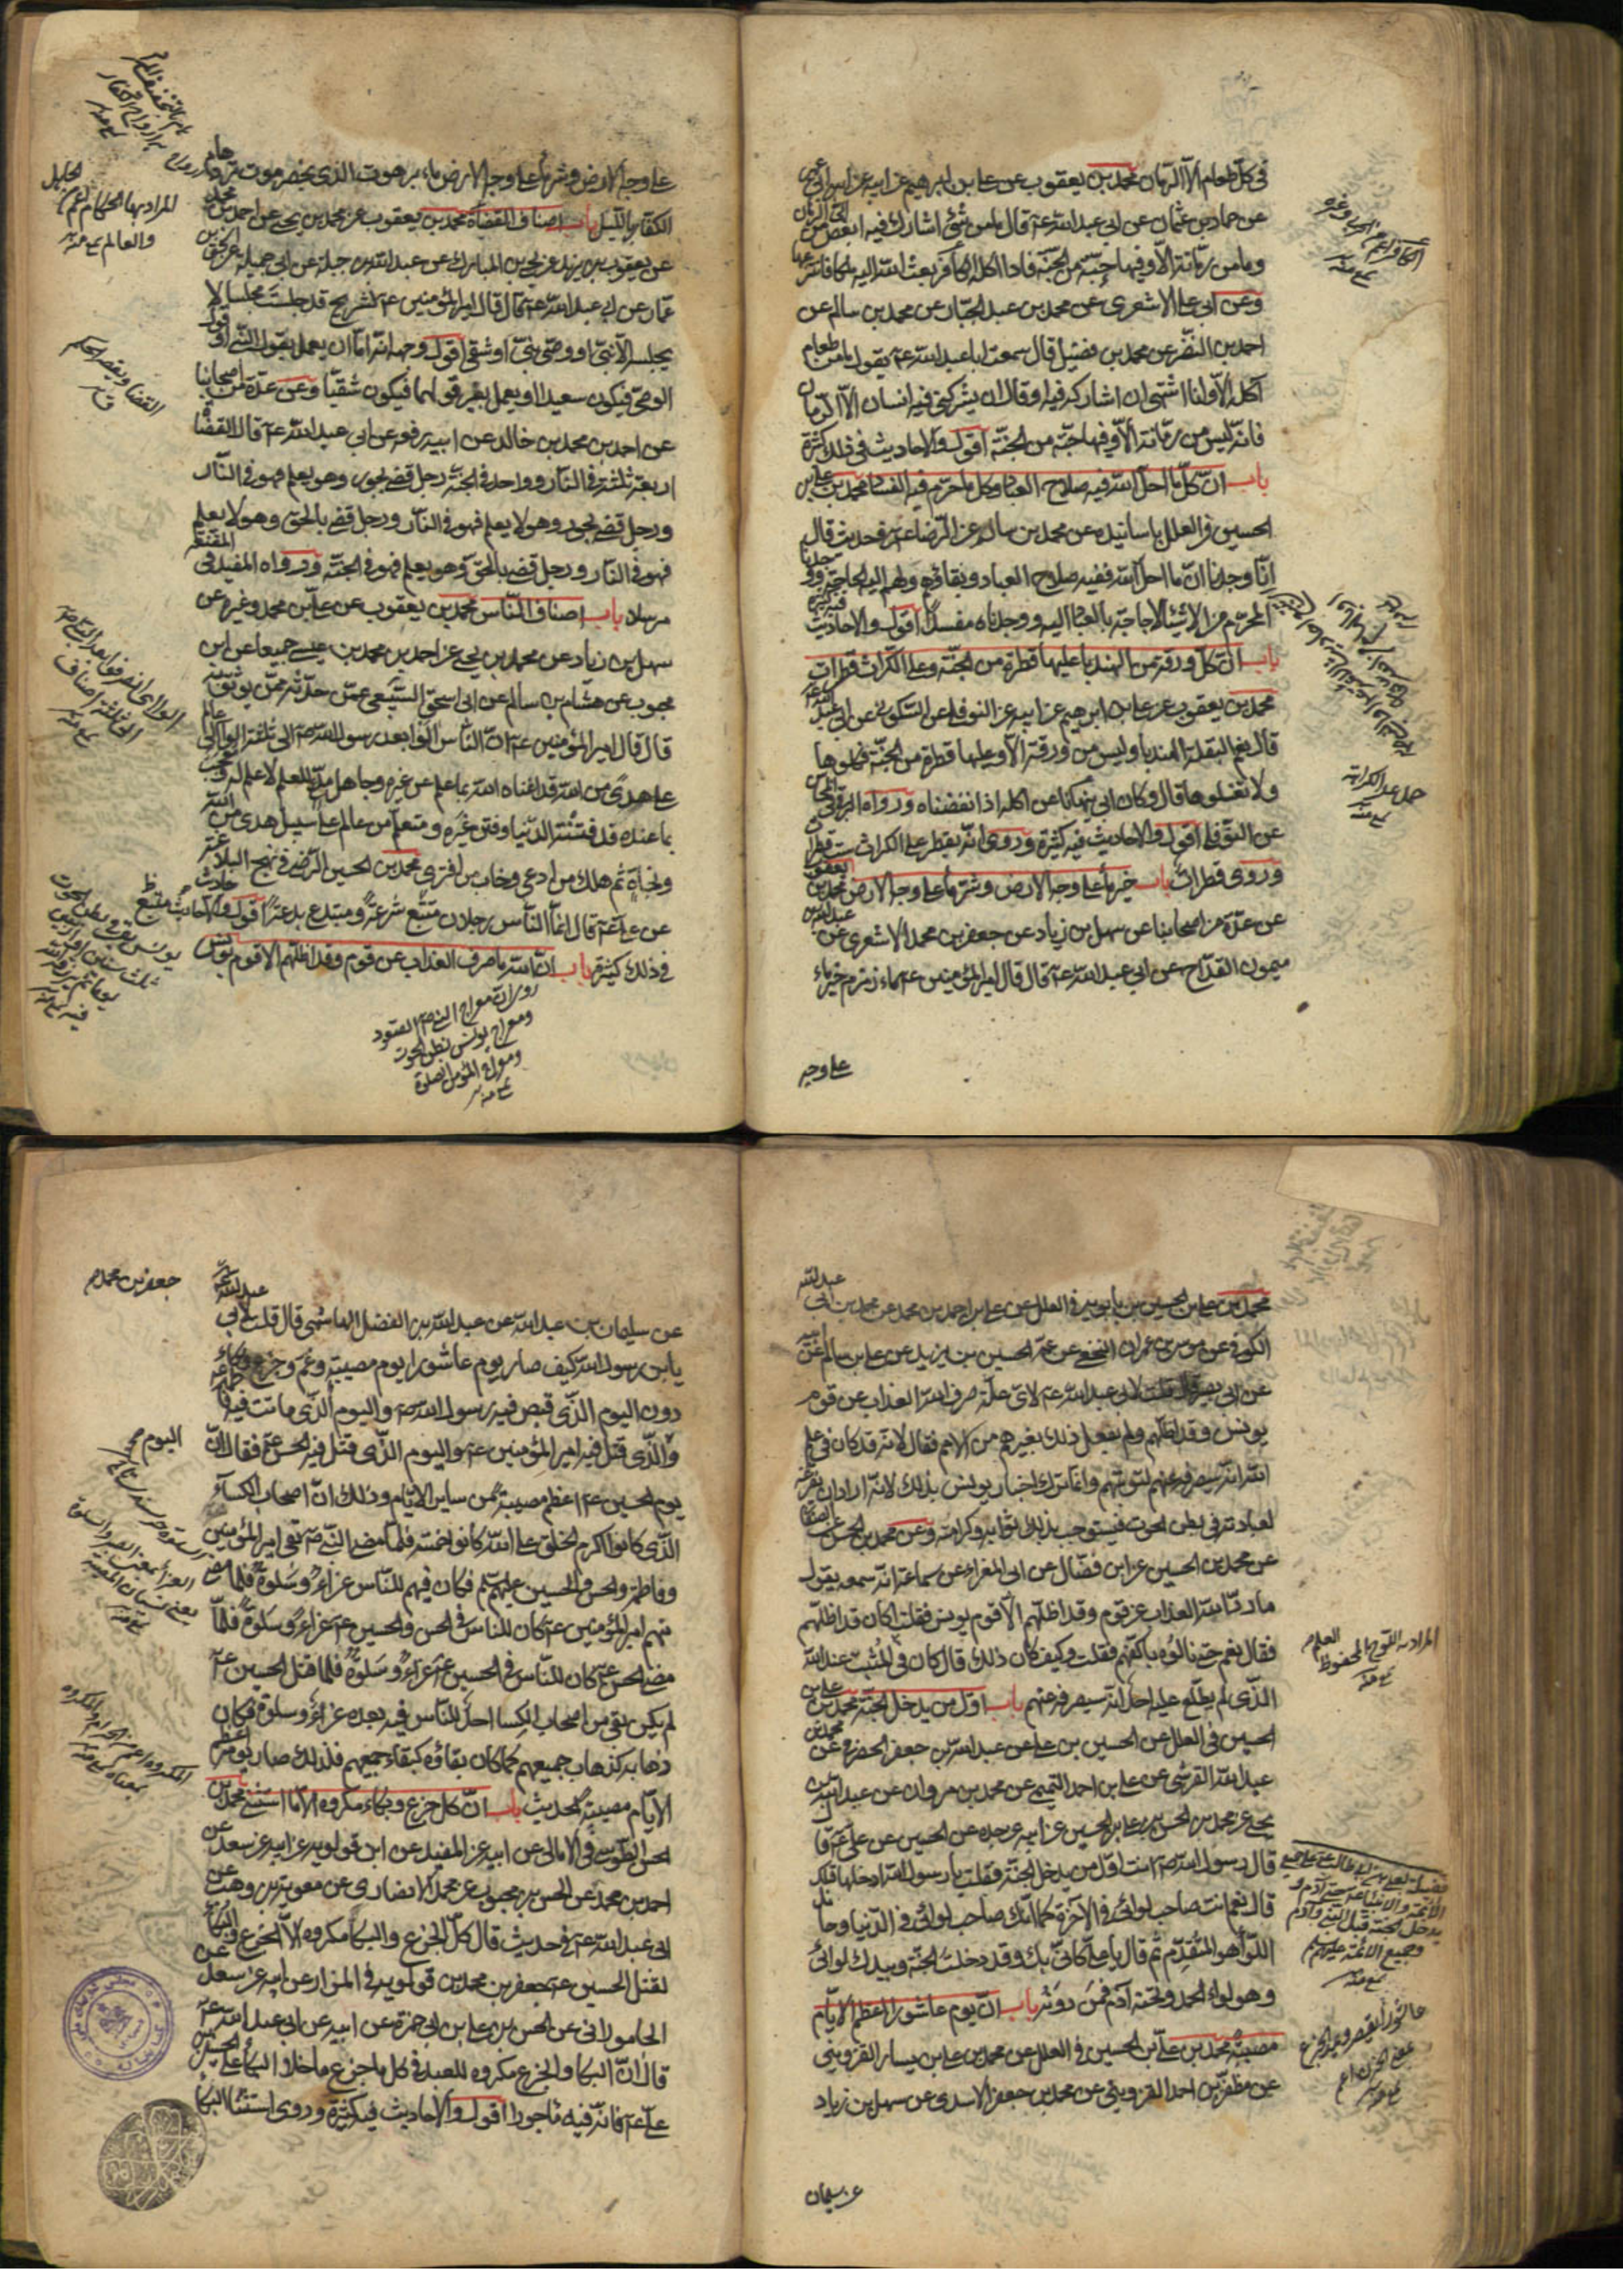 في كل طعام الا الرمان محمد بن يعقوب عن علي بن ابرهيم عن ابيه عن ابن ابي عمير
عن حماد بن عثمان عن ابي عبد الله ع قال ما من شئ اشارك فيه ابغض الى من الرمان
وما من رمانة الا وفيها حبة من الجنة فاذا اكلها الكافر بعث الله اليه ملكا فانتزعها
وعن ابي علي الاشعري عن محمد بن عبد الجبار عن محمد بن سالم عن
احمد بن النضر عن محمد بن فضيل قال سمعت ابا عبد الله ع يقول ما من طعام
آكله الا وانا اشتهي ان اشارك فيه او قال ان يشركني فيه انسان الا الرمان
فانه ليس من رمانة الا وفيها حبة من الجنة اقول والاحاديث في ذلك كثيرة
باب ان كل ما احل الله فيه صلاح العباد وكل ما حرم فيه الفساد محمد بن علي بن
الحسين في العلل باسانيده عن محمد بن سنان عن الرضا ع في حديث قال
انا وجدنا ان ما احل الله ففيه صلاح العباد وبقاؤهم ولهم اليه الحاجة ووجدنا
المحرم من الاشياء لا حاجة بالعباد اليه ووجدناه مفسدا اقول والاحاديث فيه كثيرة
باب ان كل ورقة من الهندبا عليها قطرة من الجنة وعلى الكراث قطرات
محمد بن يعقوب عن علي بن ابرهيم عن ابيه عن النوفلي عن السكوني عن ابي عبد الله ع
قال نعم البقلة الهندبا وليس من ورقة الا وعليها قطرة من الجنة فكلوها
ولا تنفضوها قال وكان ابي ينهانا عن اكله اذا نفضناه ورواه البرقي في المحاسن
عن النوفلي اقول والاحاديث فيه كثيرة وروى انه يقطر على الكراث ست قطرات
وروى قطرات باب خير ماء على وجه الارض وشر ماء على وجه الارض محمد بن يعقوب
عن عدة من اصحابنا عن سهل بن زياد عن جعفر بن محمد الاشعري عن عبد الله بن
ميمون القداح عن ابي عبد الله ع قال قال امير المؤمنين ع ماء زمزم خير ماء
على وجه
على وجه الارض وشر ماء على وجه الارض ماء برهوت الذي بحضرموت ترده هام
الكفار بالليل باب اصناف القضاة محمد بن يعقوب عن محمد بن يحيى عن احمد بن محمد
عن يعقوب بن يزيد عن يحيى بن المبارك عن عبد الله بن جبلة عن ابي جميلة عن اسحق بن
عمار عن ابي عبد الله ع قال قال امير المؤمنين ع لشريح قد جلست مجلسا لا
يجلسه الا نبي او وصي نبي او شقي اقول وجهه انه اما ان يعمل بقول النبي او قول
الوصي فيكون سعيدا او يعمل بغير قولهما فيكون شقيا وعن عدة من اصحابنا
عن احمد بن محمد بن خالد عن ابيه رفعه عن ابي عبد الله ع قال القضاة
اربعة ثلثة في النار وواحد في الجنة رجل قضى بجور وهو يعلم فهو في النار
ورجل قضى بجور وهو لا يعلم فهو في النار ورجل قضى بالحق وهو لا يعلم
فهو في النار ورجل قضى بالحق وهو يعلم فهو في الجنة ورواه المفيد في المقنعة
مرسلا باب اصناف الناس محمد بن يعقوب عن علي بن محمد وغيره عن
سهل بن زياد عن محمد بن يحيى عن احمد بن محمد بن عيسى جميعا عن ابن
محبوب عن هشام بن سالم عن ابي اسحق السبيعي عمن حدثه ممن يوثق به
قال قال امير المؤمنين ع ان الناس آلوا بعد رسول الله ص الى ثلثة آلوا الى عالم
على هدى من الله قد اغناه الله بما علم عن غيره وجاهل مدع للعلم لا علم له معجب
بما عنده قد فتنته الدنيا وفتن غيره ومتعلم من عالم على سبيل هدى من الله
ونجاة ثم هلك من ادعى وخاب من افترى محمد بن الحسين الرضي في نهج البلاغة
عن علي ع قال انما الناس رجلان متبع شرعة ومبتدع بدعة اقول والاحاديث
في ذلك كثيرة باب ان الله ما صرف العذاب عن قوم وقد اظلهم الا قوم يونس
روى ان معراج النبي ص الصعود
ومعراج يونس بطن الحوت
ومعراج المؤمن الصلوة
الجليل
المراد بها الحكام
والعالم منه
محمد بن علي بن الحسين بن بابويه في العلل عن علي بن احمد بن محمد عن محمد بن ابي عبد الله
الكوفي عن موسى بن عمران النخعي عن عمه الحسين بن يزيد عن علي بن سالم عن ابيه
عن ابي بصير قال قلت لابي عبد الله ع لاي علة صرف الله العذاب عن قوم
يونس وقد اظلهم ولم يفعل ذلك بغيرهم من الامم فقال لانه قد كان في علم
الله انه سيصرفه عنهم لتوبتهم وانما ترك اخبار يونس بذلك لانه اراد ان يفرغه
لعبادته في بطن الحوت فيستوجب بذلك ثوابه وكرامته وعن محمد بن الحسن عن الصفار
عن محمد بن الحسين عن ابن فضال عن ابي المغرا عن سماعة انه سمعه يقول
ما رد الله العذاب عن قوم وقد اظلهم الا قوم يونس فقلت اكان قد اظلهم
فقال نعم حتى نالوه باكفهم فقلت وكيف كان ذلك قال كان في المثبت عند الله
الذي لم يطلع عليه احد انه سيصرفه عنهم باب اول من يدخل الجنة محمد بن علي بن
الحسين في العلل عن الحسين بن علي عن عبد الله بن جعفر الحضرمي عن محمد بن
عبد الله القرشي عن علي بن احمد التميمي عن محمد بن مروان عن عبد الله بن
يحيى عن محمد بن الحسن بن علي بن الحسين عن ابيه عن جده عن الحسين عن علي ع قال
قال رسول الله ص انت اول من يدخل الجنة فقلت يا رسول الله ادخلها قبلك
قال نعم انت صاحب لوائي في الآخرة كما انك صاحب لوائي في الدنيا وحامل
اللواء هو المتقدم ثم قال يا علي كاني بك وقد دخلت الجنة وبيدك لوائي
وهو لواء الحمد وتحته آدم فمن دونه باب ان يوم عاشورا اعظم الايام
مصيبة محمد بن علي بن الحسين في العلل عن محمد بن علي بن بسار القزويني
عن مظفر بن احمد القزويني عن محمد بن جعفر الاسدي عن سهل بن زياد
عن سليمان
المراد به اللوح المحفوظ
عن سليمان بن عبد الله عن عبد الله بن الفضل الهاشمي قال قلت لابي عبد الله ع
يا بن رسول الله كيف صار يوم عاشورا يوم مصيبة وغم وجزع وبكاء
دون اليوم الذي قبض فيه رسول الله ص واليوم الذي ماتت فيه فاطمة ع
والذي قتل فيه امير المؤمنين ع واليوم الذي قتل فيه الحسن ع فقال ان
يوم الحسين ع اعظم مصيبة من ساير الايام وذلك ان اصحاب الكساء
الذي كانوا اكرم الخلق على الله كانوا خمسة فلما مضى النبي ص بقي امير المؤمنين
وفاطمة والحسن والحسين عليهم السلم فكان فيهم للناس عزاء وسلوة فلما مضى
منهم امير المؤمنين ع كان للناس في الحسن والحسين ع عزاء وسلوة فلما
مضى الحسن ع كان للناس في الحسين ع عزاء وسلوة فلما قتل الحسين ع
لم يكن بقي من اصحاب الكسا احد للناس فيه بعده عزاء وسلوة فكان
ذهابه كذهاب جميعهم كما كان بقاؤه كبقاء جميعهم فلذلك صار يومه اعظم
الايام مصيبة الحديث باب ان كل جزع وبكاء مكروه الا ما استثنى محمد بن
الحسن الطوسي في الامالي عن ابيه عن المفيد عن ابن قولويه عن ابيه عن سعد عن
احمد بن محمد عن الحسن بن محبوب عن محمد الانصاري عن معوية بن وهب عن
ابي عبد الله ع في حديث قال كل الجزع والبكا مكروه الا الجزع والبكاء
لقتل الحسين ع جعفر بن محمد بن قولويه في المزار عن ابيه عن سعد عن
الجاموراني عن الحسن بن علي بن ابي حمزة عن ابيه عن ابي عبد الله ع
قال ان البكا والجزع مكروه للعبد في كل ما جزع ما خلا البكاء على الحسين بن
علي ع فانه فيه مأجور اقول والاحاديث فيه كثيرة وروى استثنا البكا
جعفر بن محمد
اليوم